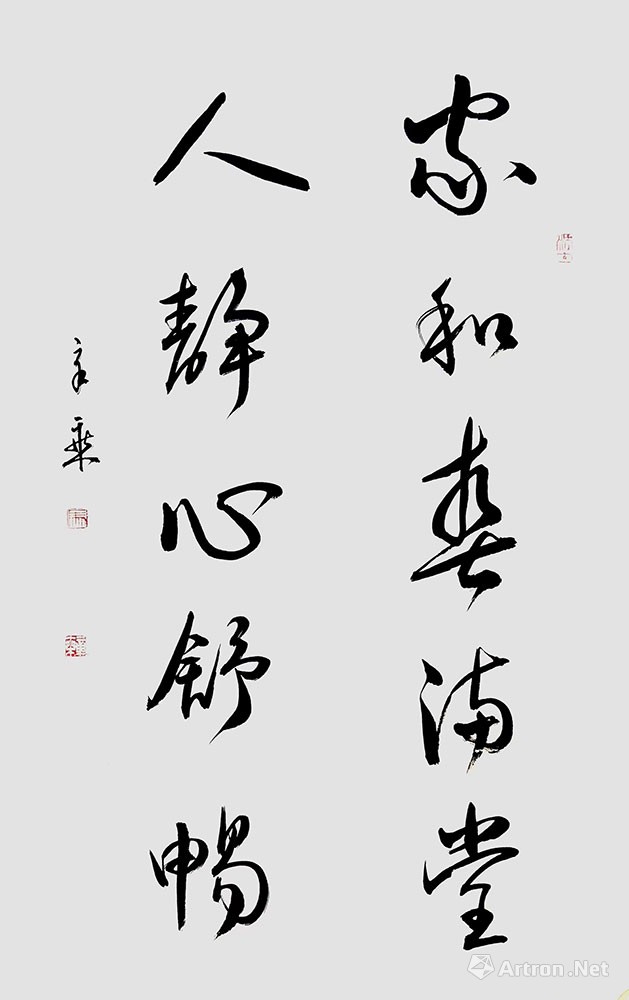 家和春满堂
人静心舒畅
Artron.Net